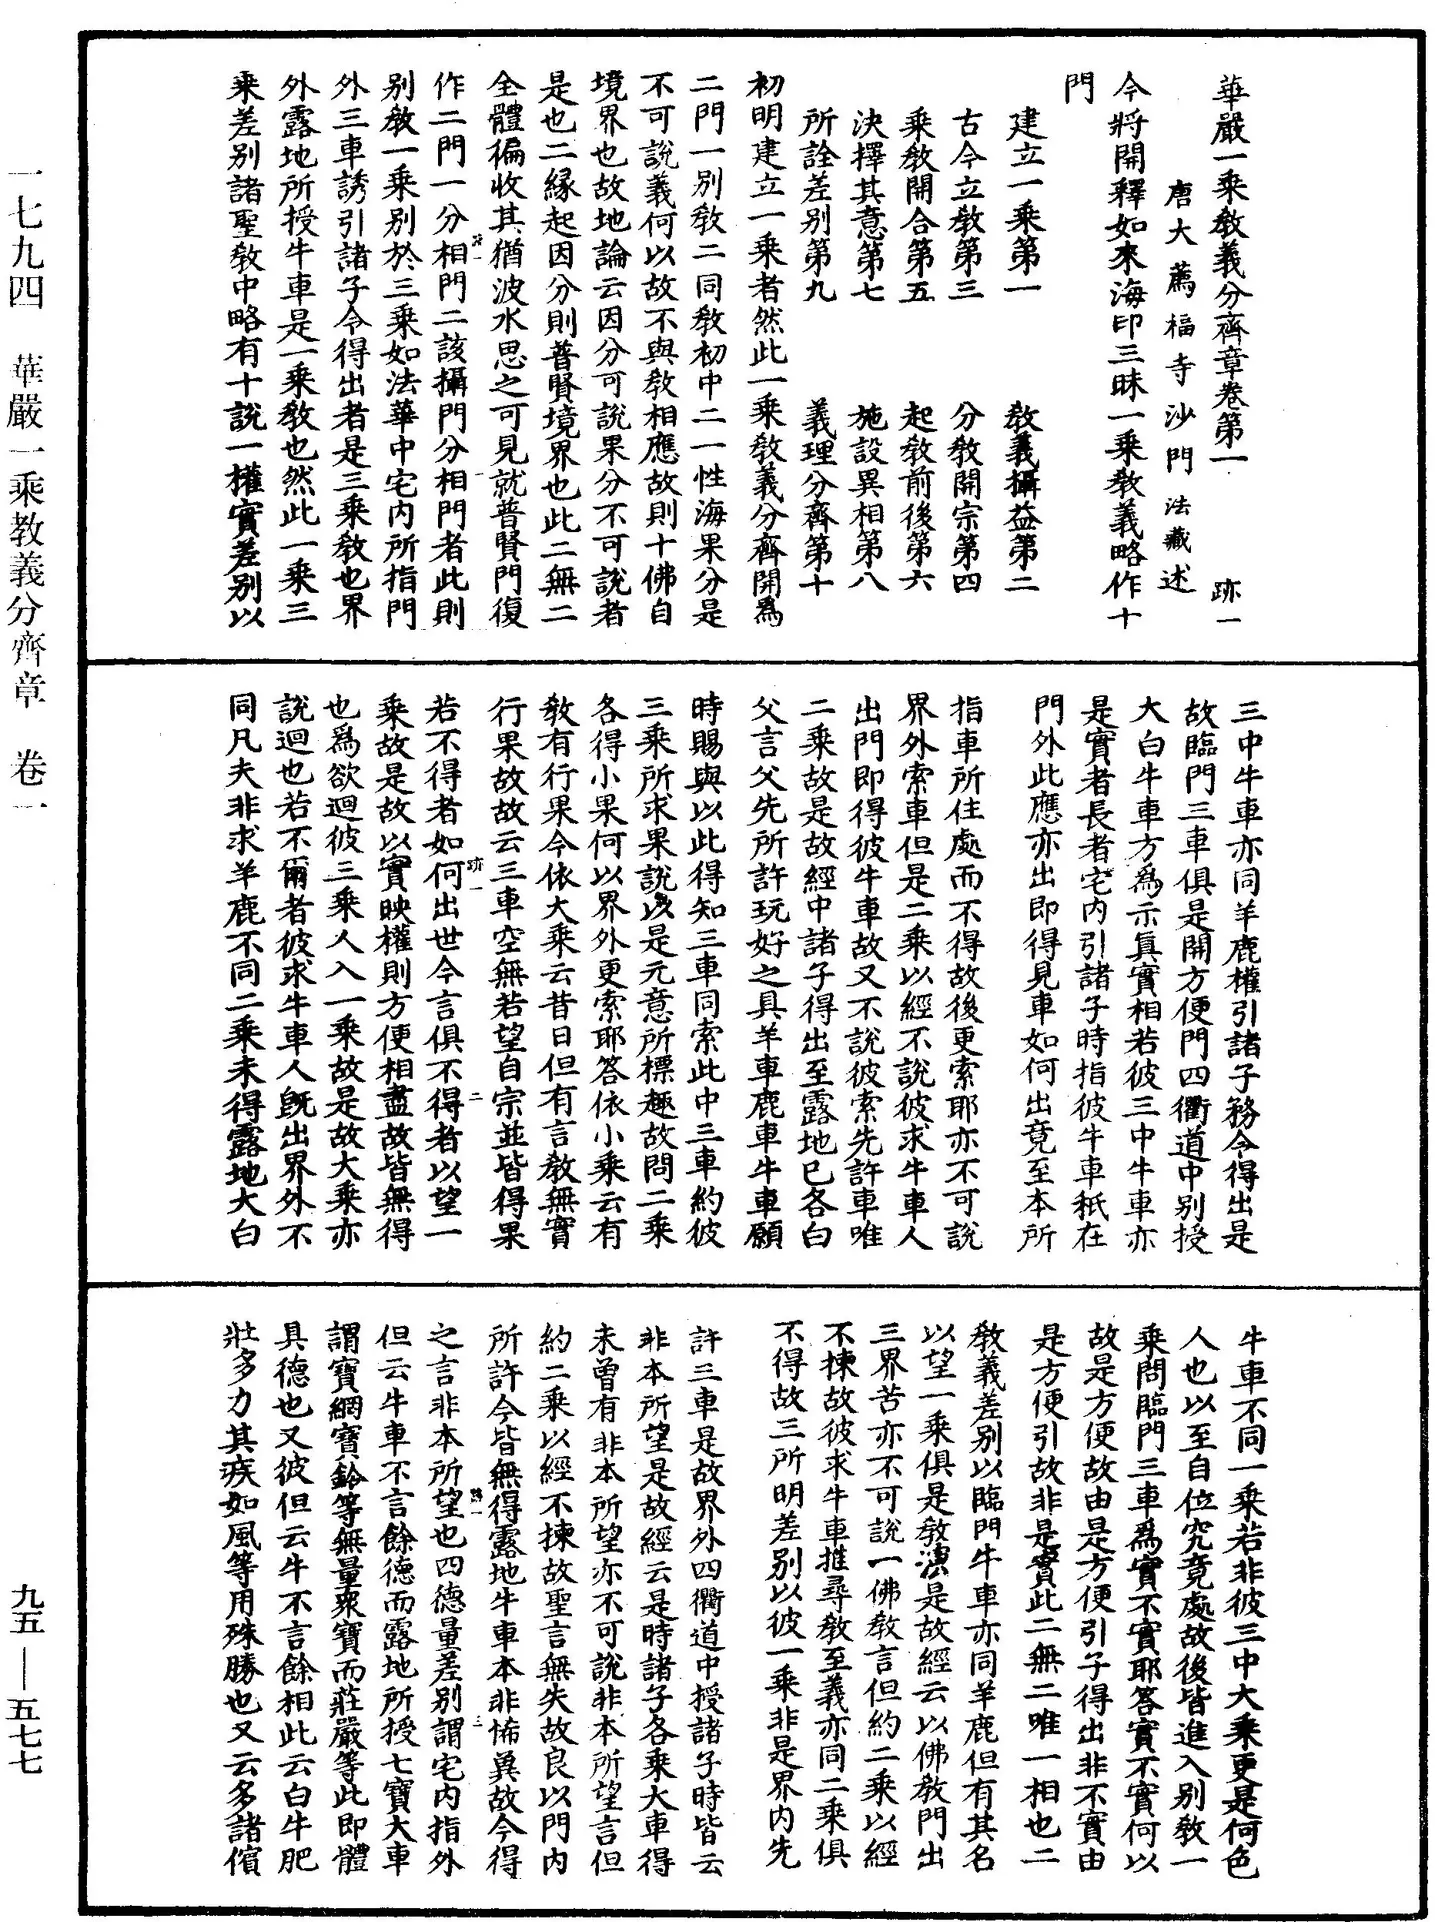 華嚴一乘教義分齊章卷第一　跡一
唐大薦福寺沙門法藏述
今將開釋如來海印三昧一乘教義略作十
門
建立一乘第一　教義攝益第二
古今立教第三　分教開宗第四
乘教開合第五　起教前後第六
決擇其意第七　施設異相第八
所詮差別第九　義理分齊第十
初明建立一乘者然此一乘教義分齊開為
二門一別教二同教初中二一性海果分是
不可說義何以故不與教相應故則十佛自
境界也故地論云因分可說果分不可說者
是也二緣起因分則普賢境界也此二無二
全體徧收其猶波水思之可見就普賢門復
作二門一分相門二該攝門分相門者此則
別教一乘別於三乘如法華中宅內所指門
外三車誘引諸子令得出者是三乘教也界
外露地所授牛車是一乘教也然此一乘三
乘差別諸聖教中略有十說一權實差別以
三中牛車亦同羊鹿權引諸子務令得出是
故臨門三車俱是開方便門四衢道中別授
大白牛車方為示真實相若彼三中牛車亦
是實者長者宅內引諸子時指彼牛車秖在
門外此應亦出即得見車如何出竟至本所
指車所住處而不得故後更索耶亦不可說
界外索車但是二乘以經不說彼求牛車人
出門即得彼牛車故又不說彼索先許車唯
二乘故是故經中諸子得出至露地已各白
父言父先所許玩好之具羊車鹿車牛車願
時賜與以此得知三車同索此中三車約彼
三乘所求果說以是元意所標趣故問二乘
各得小果何以界外更索耶答依小乘云有
教有行果今依大乘云昔日但有言教無實
行果故故云三車空無若望自宗並皆得果
若不得者如何出世今言俱不得者以望一
乘故是故以實映權則方便相盡故皆無得
也為欲迴彼三乘人入一乘故是故大乘亦
說迴也若不爾者彼求牛車人既出界外不
同凡夫非求羊鹿不同二乘未得露地大白
牛車不同一乘若非彼三中大乘更是何色
人也以至自位究竟處故後皆進入別教一
乘問臨門三車為實不實耶答實不實何以
故是方便故由是方便引子得出非不實由
是方便引故非是實此二無二唯一相也二
教義差別以臨門牛車亦同羊鹿但有其名
以望一乘俱是教演是故經云以佛教門出
三界苦亦不可說一佛教言但約二乘以經
不揀故彼求牛車推尋教至義亦同二乘俱
不得故三所明差別以彼一乘非是界內先
許三車是故界外四衢道中授諸子時皆云
非本所望是故經云是時諸子各乘大車得
未曾有非本所望亦不可說非本所望言但
約二乘以經不揀故聖言無失故良以門內
所許今皆無得露地牛車本非悕冀故今得
之言非本所望也四德量差別謂宅內指外
但云牛車不言餘德而露地所授七寶大車
謂寶網寶鈴等無量眾寶而莊嚴等此即體
具德也又彼但云牛不言餘相此云白牛肥
壯多力其疾如風等用殊勝也又云多諸儐
一七九四　華嚴一乘教義分齊章　卷一
九五—五七七